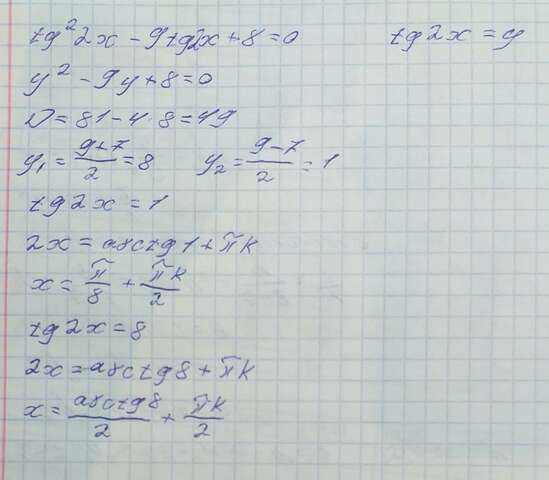 tg²2x - 9tg2x + 8 = 0 tg2x = y
y² - 9y + 8 = 0
D = 81 - 4·8 = 49
y₁ = (9+7)/2 = 8 y₂ = (9-7)/2 = 1
tg2x = 1
2x = arctg1 + πk
x = π/8 + πk/2
tg2x = 8
2x = arctg8 + πk
x = arctg8/2 + πk/2